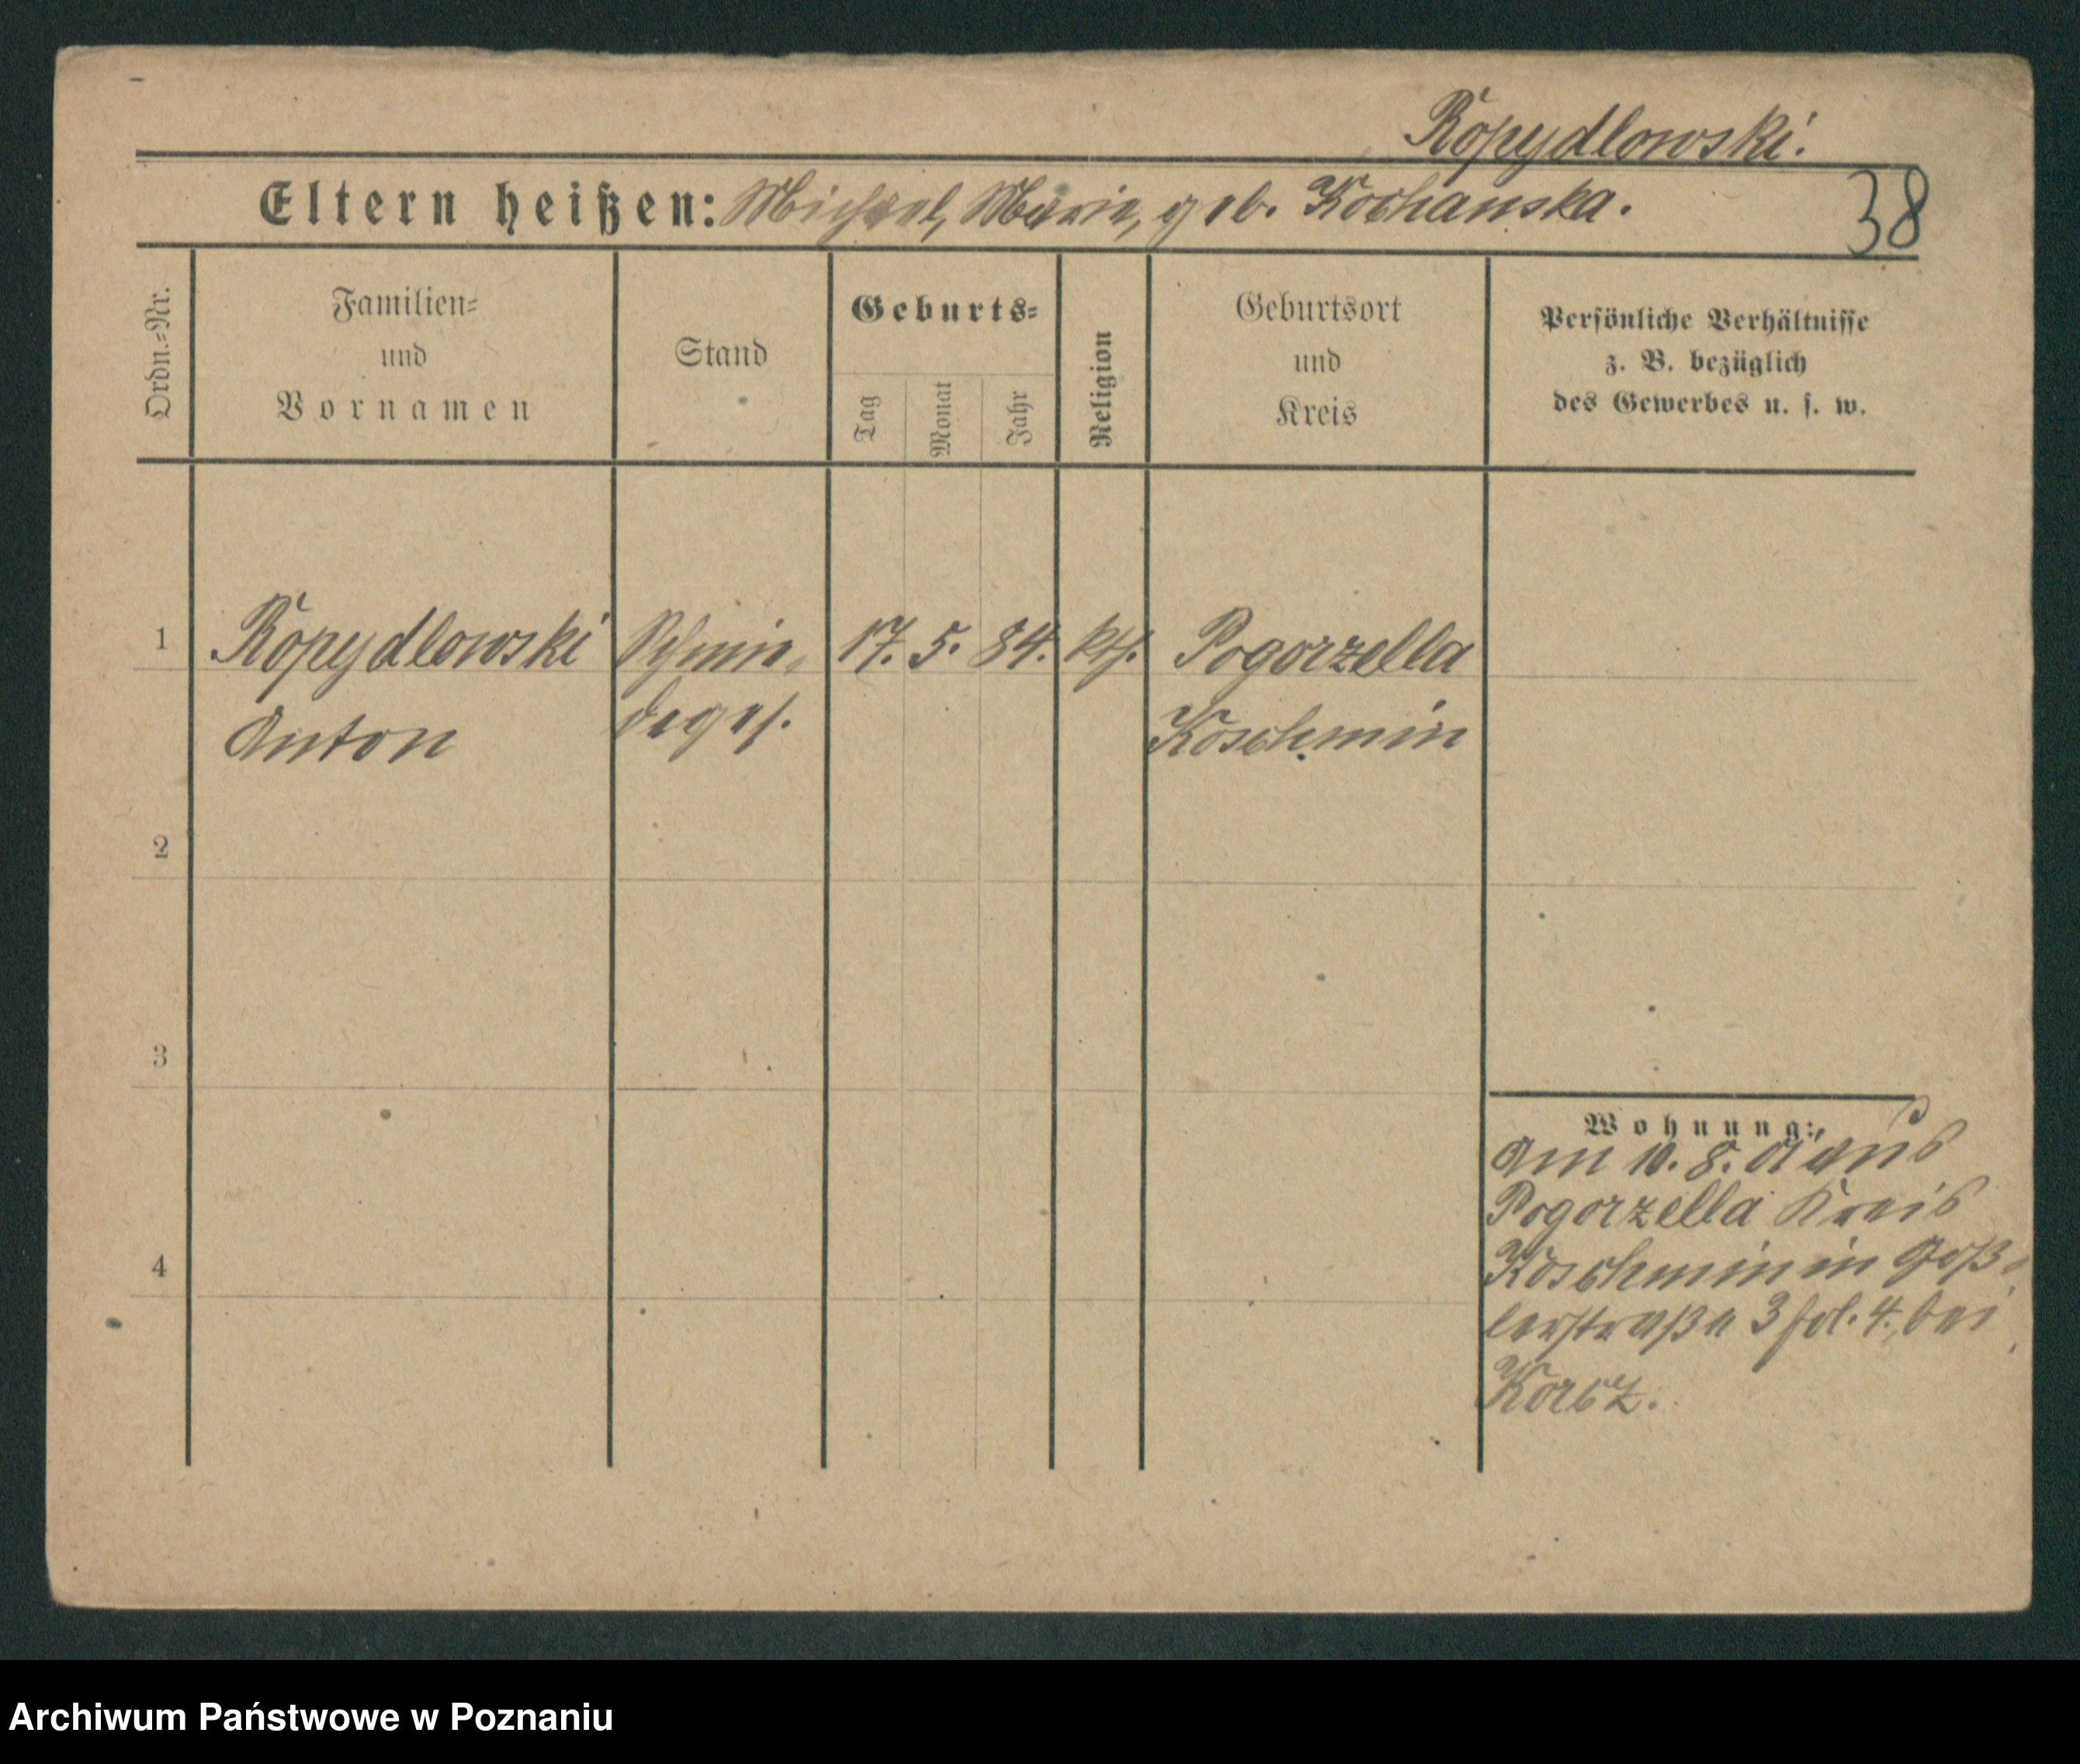 Kopydlowski.
Eltern heißen: Michael, Marie, geb. Kochanska.
38
Ordn.=Nr.
Familien=
und
Vornamen
Stand
Geburts=
Tag
Monat
Jahr
Religion
Geburtsort
und
Kreis
Persönliche Verhältnisse
z. B. bezüglich
des Gewerbes u. s. w.
1 Kopydlowski Schmie- 17. 5. 84. kth. Pogorzella
Anton deges. Koschmin
2
3
4
Wohnung:
Am 10. 8. 01 aus
Pogorzella Kreis
Koschmin in Goß-
lerstraße 3 fol. 4. bei